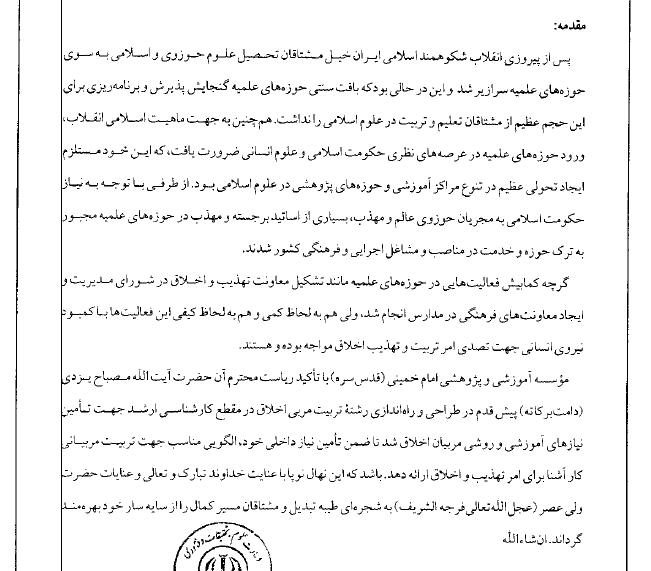 مقدمه:
پس از پیروزی انقلاب شکوهمند اسلامی ایران خیل مشتاقان تحصیل علوم حوزوی و اسلامی به سوی
حوزه‌های علمیه سرازیر شد و این در حالی بود که بافت سنتی حوزه‌های علمیه گنجایش پذیرش و برنامه‌ریزی برای
این حجم عظیم از مشتاقان تعلیم و تربیت در علوم اسلامی را نداشت. هم‌چنین به جهت ماهیت اسلامی انقلاب،
ورود حوزه‌های علمیه در عرصه‌های نظری حکومت اسلامی و علوم انسانی ضرورت یافت، که این خود مستلزم
ایجاد تحولی عظیم در تنوع مراکز آموزشی و حوزه‌های پژوهشی در علوم اسلامی بود. از طرفی با توجه به نیاز
حکومت اسلامی به مجریان حوزوی عالم و مهذب، بسیاری از اساتید برجسته و مهذب در حوزه‌های علمیه مجبور
به ترک حوزه و خدمت در مناصب و مشاغل اجرایی و فرهنگی کشور شدند.
گرچه کمابیش فعالیت‌هایی در حوزه‌های علمیه مانند تشکیل معاونت تهذیب و اخلاق در شورای مدیریت و
ایجاد معاونت‌های فرهنگی در مدارس انجام شد، ولی هم به لحاظ کمی و هم به لحاظ کیفی این فعالیت‌ها با کمبود
نیروی انسانی جهت تصدی امر تربیت و تهذیب اخلاق مواجه بوده و هستند.
مؤسسه آموزشی و پژوهشی امام خمینی (قدس‌سره) با تأکید ریاست محترم آن حضرت آیت الله مصباح یزدی
(دامت‌برکاته) پیش قدم در طراحی و راه‌اندازی رشتهٔ تربیت مربی اخلاق در مقطع کارشناسی ارشد جهت تأمین
نیازهای آموزشی و روشی مربیان اخلاق شد تا ضمن تأمین نیاز داخلی خود، الگویی مناسب جهت تربیت مربیانی
کار آشنا برای امر تهذیب و اخلاق ارائه دهد. باشد که این نهال نوپا با عنایت خداوند تبارک و تعالی و عنایات حضرت
ولی عصر (عجل الله تعالی فرجه الشریف) به شجره‌ای طیبه تبدیل و مشتاقان مسیر کمال را از سایه سار خود بهره‌مند
گرداند. ان شاءالله
وزارت علوم، تحقیقات و فناوری